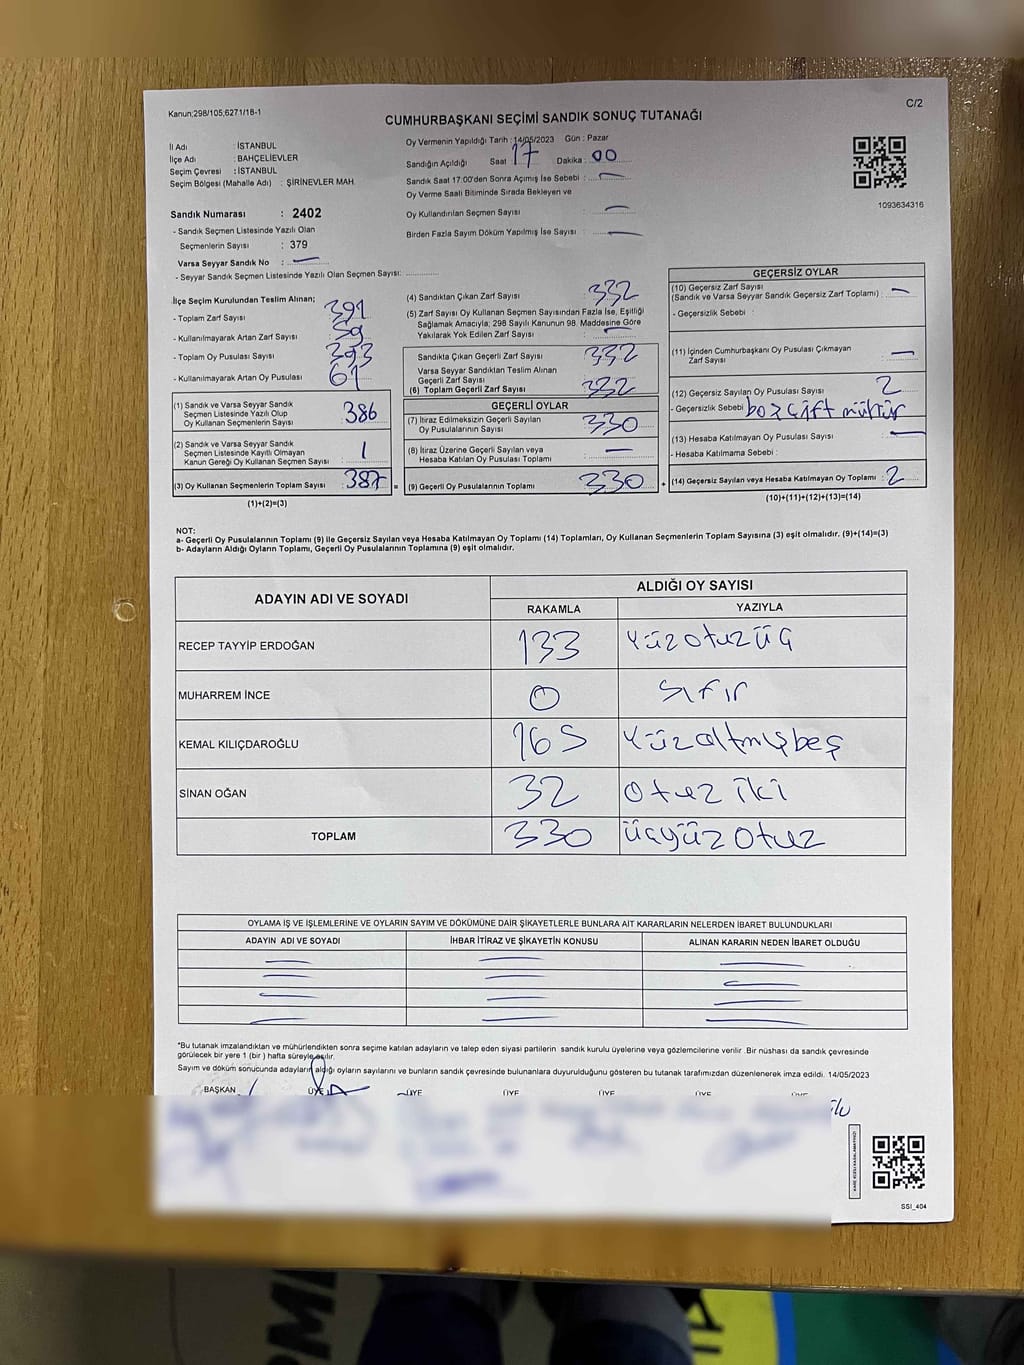 Kanun;298/105;6271/18-1
C/2
CUMHURBAŞKANI SEÇİMİ SANDIK SONUÇ TUTANAĞI
İl Adı : İSTANBUL
İlçe Adı : BAHÇELİEVLER
Seçim Çevresi : İSTANBUL
Seçim Bölgesi (Mahalle Adı) : ŞİRİNEVLER MAH.
Sandık Numarası : 2402
- Sandık Seçmen Listesinde Yazılı Olan
Seçmenlerin Sayısı : 379
Varsa Seyyar Sandık No : —
- Seyyar Sandık Seçmen Listesinde Yazılı Olan Seçmen Sayısı: ............
Oy Vermenin Yapıldığı Tarih :14/05/2023 Gün : Pazar
Sandığın Açıldığı Saat 17 Dakika : 00
Sandık Saat 17:00'den Sonra Açımış İse Sebebi : —
Oy Verme Saati Bitiminde Sırada Bekleyen ve
Oy Kullandırılan Seçmen Sayısı : —
Birden Fazla Sayım Döküm Yapılmış İse Sayısı : —
1093634316
İlçe Seçim Kurulundan Teslim Alınan;
- Toplam Zarf Sayısı : 391
- Kullanılmayarak Artan Zarf Sayısı : 59
- Toplam Oy Pusulası Sayısı : 393
- Kullanılmayarak Artan Oy Pusulası : 61
(1) Sandık ve Varsa Seyyar Sandık
Seçmen Listesinde Yazılı Olup
Oy Kullanan Seçmenlerin Sayısı : 386
(2) Sandık ve Varsa Seyyar Sandık
Seçmen Listesinde Kayıtlı Olmayan
Kanun Gereği Oy Kullanan Seçmen Sayısı : 1
(3) Oy Kullanan Seçmenlerin Toplam Sayısı : 387 =
(1)+(2)=(3)
(4) Sandıktan Çıkan Zarf Sayısı : 332
(5) Zarf Sayısı Oy Kullanan Seçmen Sayısından Fazla İse, Eşitliği
Sağlamak Amacıyla; 298 Sayılı Kanunun 98. Maddesine Göre
Yakılarak Yok Edilen Zarf Sayısı : —
Sandıkta Çıkan Geçerli Zarf Sayısı : 332
Varsa Seyyar Sandıktan Teslim Alınan
Geçerli Zarf Sayısı
(6) Toplam Geçerli Zarf Sayısı : 332
GEÇERLİ OYLAR
(7) İtiraz Edilmeksizin Geçerli Sayılan
Oy Pusulalarının Sayısı : 330
(8) İtiraz Üzerine Geçerli Sayılan veya
Hesaba Katılan Oy Pusulası Toplamı : —
(9) Geçerli Oy Pusulalarının Toplamı : 330 +
GEÇERSİZ OYLAR
(10) Geçersiz Zarf Sayısı
(Sandık ve Varsa Seyyar Sandık Geçersiz Zarf Toplamı) : —
- Geçersizlik Sebebi :
(11) İçinden Cumhurbaşkanı Oy Pusulası Çıkmayan
Zarf Sayısı : —
(12) Geçersiz Sayılan Oy Pusulası Sayısı : 2
- Geçersizlik Sebebi : boz çift mühür
(13) Hesaba Katılmayan Oy Pusulası Sayısı : —
- Hesaba Katılmama Sebebi :
(14) Geçersiz Sayılan veya Hesaba Katılmayan Oy Toplamı : 2
(10)+(11)+(12)+(13)=(14)
NOT:
a- Geçerli Oy Pusulalarının Toplamı (9) ile Geçersiz Sayılan veya Hesaba Katılmayan Oy Toplamı (14) Toplamları, Oy Kullanan Seçmenlerin Toplam Sayısına (3) eşit olmalıdır. (9)+(14)=(3)
b- Adayların Aldığı Oyların Toplamı, Geçerli Oy Pusulalarının Toplamına (9) eşit olmalıdır.
ADAYIN ADI VE SOYADI
ALDIĞI OY SAYISI
RAKAMLA YAZIYLA
RECEP TAYYİP ERDOĞAN 133 Yüzotuzüç
MUHARREM İNCE 0 sıfır
KEMAL KILIÇDAROĞLU 165 Yüzaltmışbeş
SİNAN OĞAN 32 otuz iki
TOPLAM 330 üçyüz otuz
OYLAMA İŞ VE İŞLEMLERİNE VE OYLARIN SAYIM VE DÖKÜMÜNE DAİR ŞİKAYETLERLE BUNLARA AİT KARARLARIN NELERDEN İBARET BULUNDUKLARI
ADAYIN ADI VE SOYADI İHBAR İTİRAZ VE ŞİKAYETİN KONUSU ALINAN KARARIN NEDEN İBARET OLDUĞU
*Bu tutanak imzalandıktan ve mühürlendikten sonra seçime katılan adayların ve talep eden siyasi partilerin sandık kurulu üyelerine veya gözlemcilerine verilir .Bir nüshası da sandık çevresinde
görülecek bir yere 1 (bir ) hafta süreyle asılır.
Sayım ve döküm sonucunda adayların aldığı oyların sayılarını ve bunların sandık çevresinde bulunanlara duyurulduğunu gösteren bu tutanak tarafımızdan düzenlenerek imza edildi. 14/05/2023
BAŞKAN ÜYE ÜYE ÜYE ÜYE ÜYE ÜYE
SSI_404